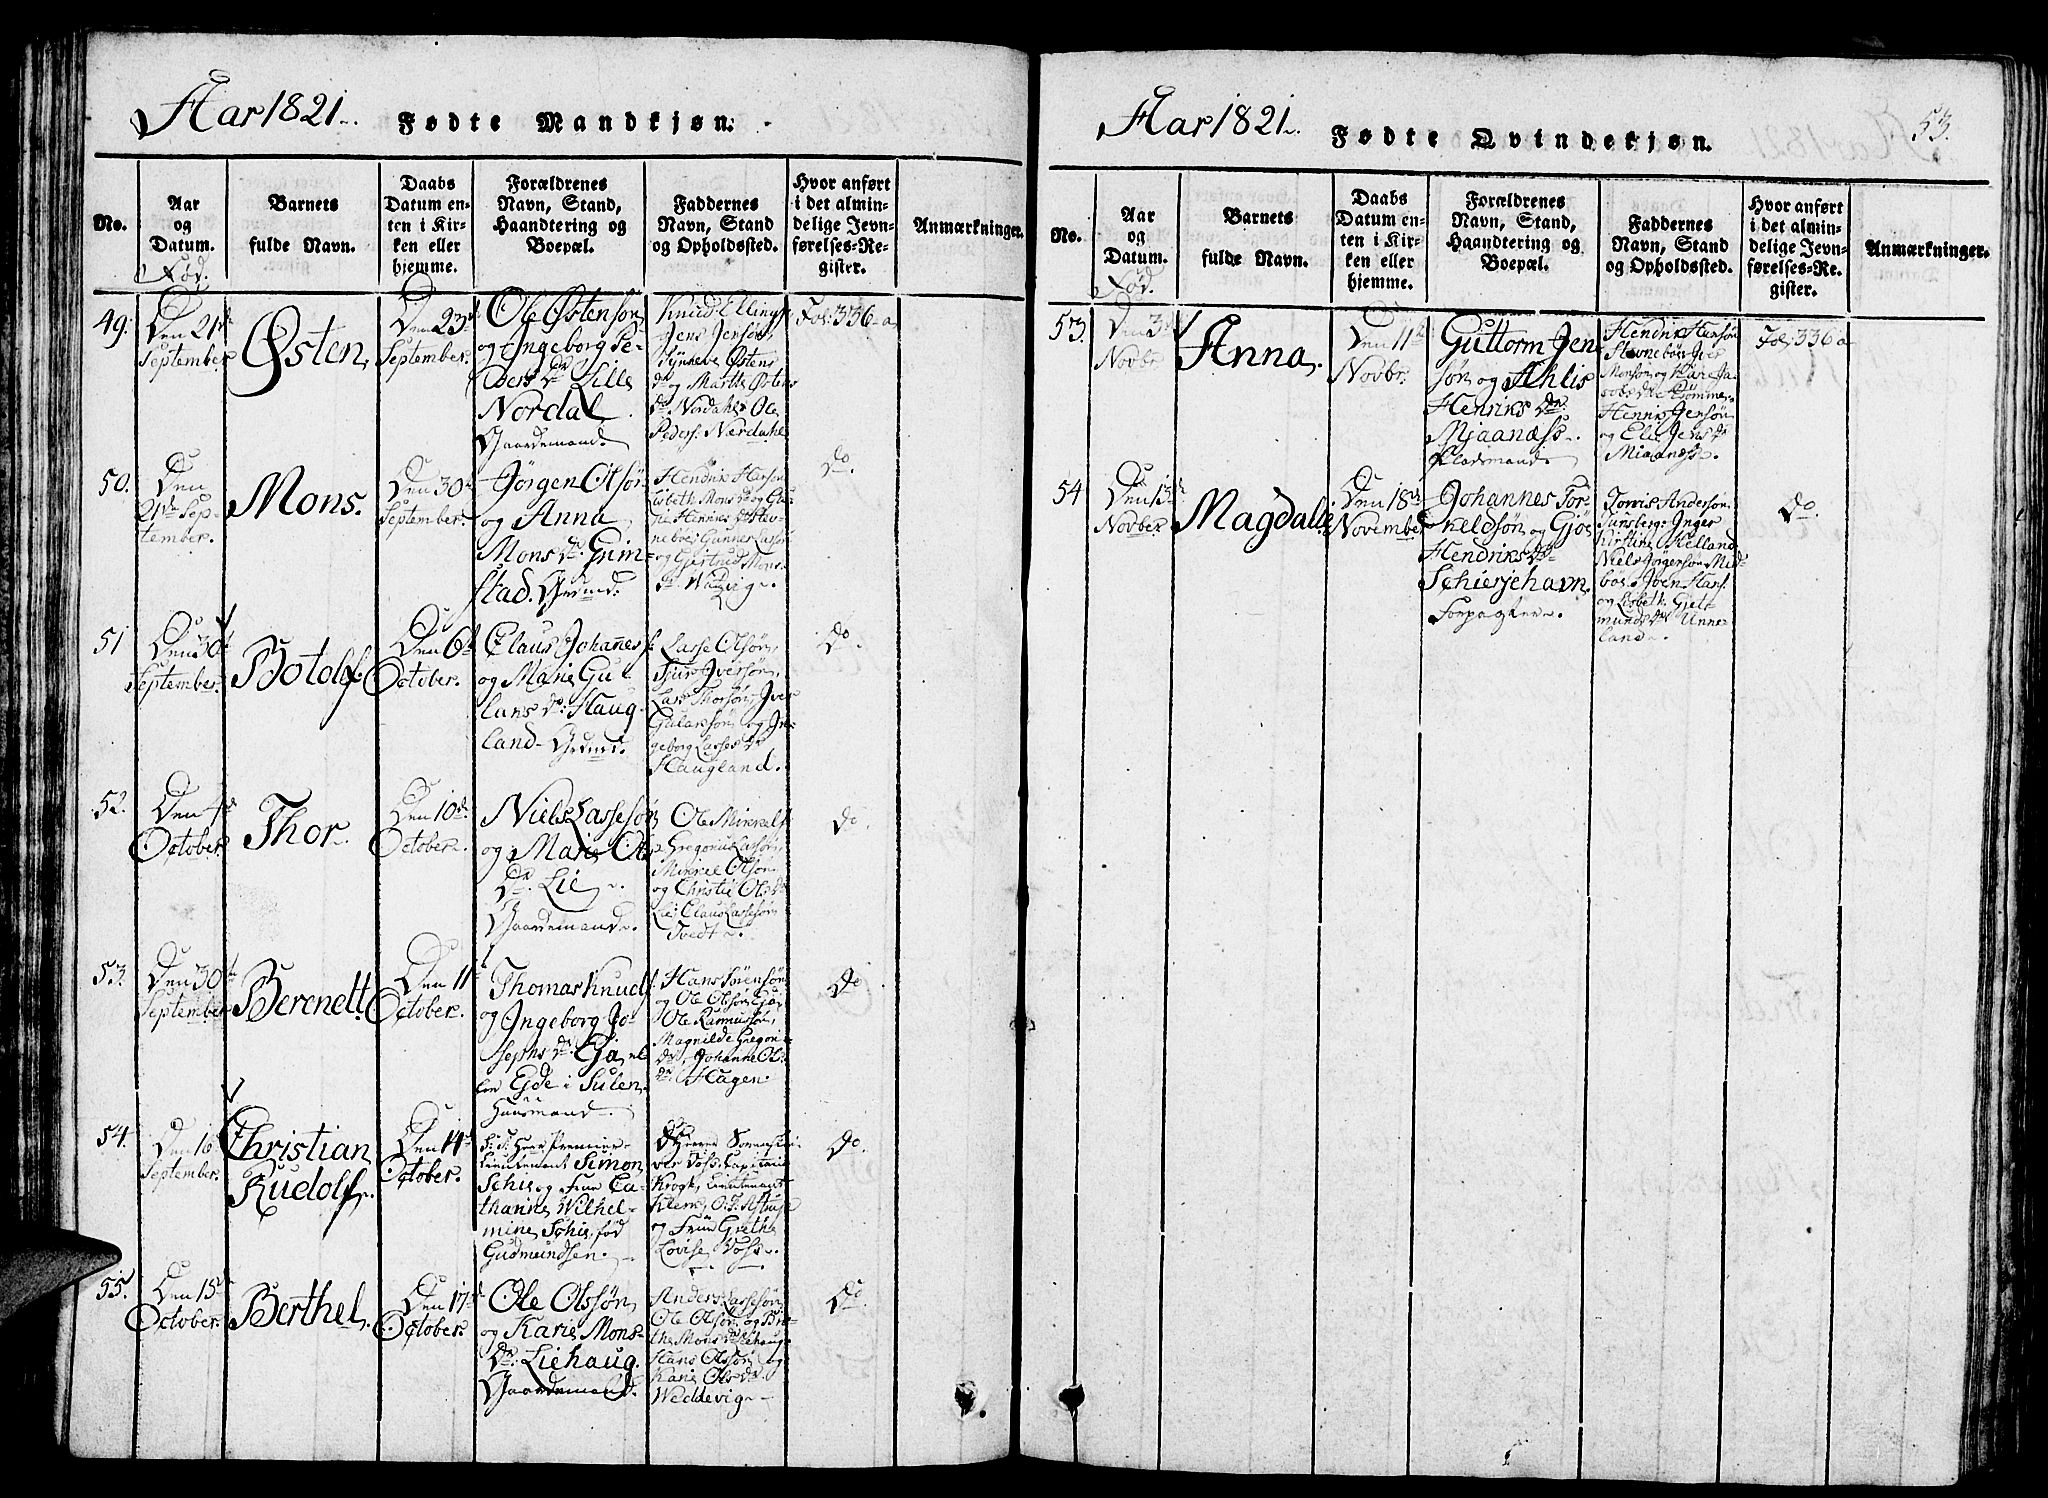 Aar 1821.
Fødte Mandkjøn.
No.
Aar
og
Datum.
Fød.
Barnets
fulde Navn.
Daabs
Datum en-
ten i Kir-
ken eller
hjemme.
Forældrenes
Navn, Stand,
Haandtering og
Boepæl.
Faddernes
Navn, Stand
og Opholdssted.
Hvor anført
i det almin-
delige Jevn-
førelses-Re-
gister.
Anmærkninger.
49.
Den 21de
September
Østen
Den 23de
September.
Ole Østensøn
og Ingeborg Pe-
ders Dr. Lille
Nordal
Gaardmand.
Knud Ellings.
Jens Jensøn,
Synneve Østens
dr. og Marthe Østens
Dr. Nordahl, Ole
Peders. Nordahl
Fol. 336-a
50.
Den
21de Sep-
tember.
Mons.
Den 30te
September.
Jørgen Olsøn
og Anna
Mons Dr. Grim-
stad. Grdmd.
Hendrik Hansøn
Lisbeth Mons dr. og
Gunner Lassøn
og Giertrud Mons
Do.
51
Den 30te
September.
Botolf.
Den 6te
October.
Claus Johannes s.
og Marie Gul-
laks Dr. Haug-
land. Grdmd.
Lasse Olsøn,
Sjur Iversøn,
Lars Thorsøn, Iver
Gulachsøn og In-
geborg Lasses dr.
Haugland.
Do.
52.
Den 4de
October.
Thor.
Den 10de
October.
Niels Lassesøn
og Marie Ols
Dr. Lie
Gaardmand.
Ole Mikkels.
Gregorius Lassøn,
Mikkel Olsøn
og Christie Ols dr.
Lie, Claus Lassesøn
Tvedt.
Do.
53.
Den 30te
September
Berenett.
Den 11te
October.
Thomas Knuds.
og Ingeborg Jo-
sephs Dr.
Eide i Sulen.
Huusmand.
Hans Sørensøn
og Ole Olsøn
Ole Rasmussøn,
Magnilde Gregori-
dr., Johanne Ols-
dr. Hagen.
Do
54.
Den 16
September.
Christian
Rudolf.
Den 14de
October.
Herr Premier-
Lieutenant Simon
Schie og Frue Ca-
thanine Wilhel-
mine Schie, fød
Gudmundsen.
Herr Sorenskri-
ver Voss, Capitaine
Krogh, Lieutenant
og Frue Grethe
Lovise Voss.
Do.
55.
Den 15de
October.
Berthel.
Den 17de
October.
Ole Olssøn
og Kari Mons-
Dr. Liehaug.
Gaardmand.
Anders Lassesøn
Ole Olsøn og Bri-
the Mons Dr. Liehaug
Hans Olssøn og
Kari Ols dr.
Weddevig
Do.
Aar 1821.
Fødte Qvindekjøn.
53.
No.
Aar
og
Datum.
Fød.
Barnets
fulde Navn.
Daabs
Datum en-
ten i Kir-
ken eller
hjemme.
Forældrenes
Navn, Stand,
Haandtering og
Boepæl.
Faddernes
Navn, Stand
og Opholdssted.
Hvor anført
i det almin-
delige Jevn-
førelses-Re-
gister.
Anmærkninger.
53.
Den 3de
Novbr.
Anna.
Den 11te
Novbr.
Guttorm Jen
søn og Ahlis
Henriks Dr.
Mjaanæss.
Pladsmand.
Hendrik Hansøn
Stavnebøe, Iver
Monsøn og Kari Ja-
cobs dr.
Henrik Jensøn
og Eli Jens dr.
Miaanæss.
Fol. 336 a
54
Den 13de
Novber.
Magdalle
Den 18de
November
Johannes Tor-
keldsøn og Gjøe
Hendriks Dr.
Schierjehavn.
Forpagter.
Anderssøn
Inger
Kirstine Helland
Niels Jørgensøn Mid-
bøe, Joen Hans.
og Lisbeth Gjert-
munds dr. Unne-
land.
Do.